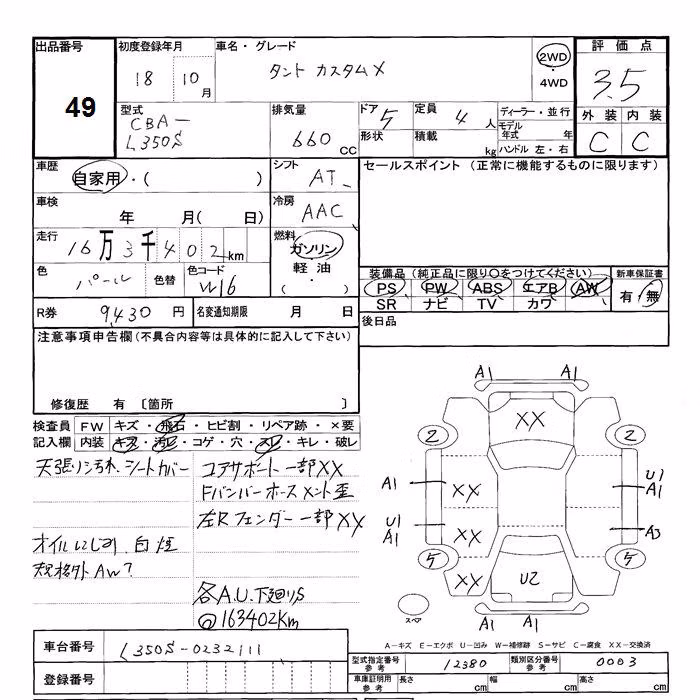 出品番号
49
初度登録年月
18 10月
車名・グレード
タント カスタムX
2WD
・
4WD
評価点
3.5
外装 内装
C C
型式
CBA-
L350S
排気量
660 cc
ドア 5
形状
定員 4 人
積載 kg
ディーラー・並行
モデル年式 年
ハンドル 左・右
車歴
自家用・( )
シフト
AT
セールスポイント (正常に機能するものに限ります)
車検
年 月( 日)
冷房
AAC
走行
16万3千402km
燃料
ガソリン
軽油
・( )
色
パール
色替
色コード
W16
装備品 (純正品に限り○をつけてください)
PS PW ABS エアB AW
SR ナビ TV カワ
新車保証書
有・無
R券 9,430 円
名変通知期限 月 日
後日品
注意事項申告欄(不具合内容等は具体的に記入して下さい)
修復歴 有 〔箇所 〕
検査員記入欄
FW キズ・飛石・ヒビ割・リペア跡・×要
内装 キズ・汚レ・コゲ・穴・スレ・キレ・破レ
天張リン汚れ、シートカバー
オイルにじみ、白煙
規格外AW?
コアサポート一部XX
Fバンパーホースメント歪
左Rフェンダー一部XX
各A.U.下廻りS
@163402km
A1 A1
XX
2 2
A1 XX U1 A1
U1 A1 XX A3
5 XX U2 5
A1 A1
スペア
A-キズ E-エクボ U-凹み W-補修跡 S-サビ C-腐食 XX-交換済
車台番号 L350S-0232111
登録番号
型式指定番号参考 12380
類別区分番号参考 0003
車庫証明用参考
長さ cm
幅 cm
高さ cm